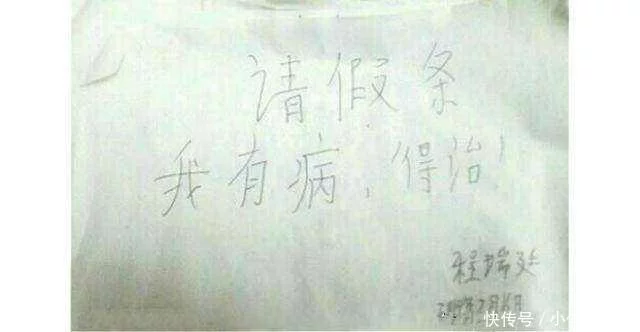 请假条
我有病,得治!
程瑞廷
快传号/小